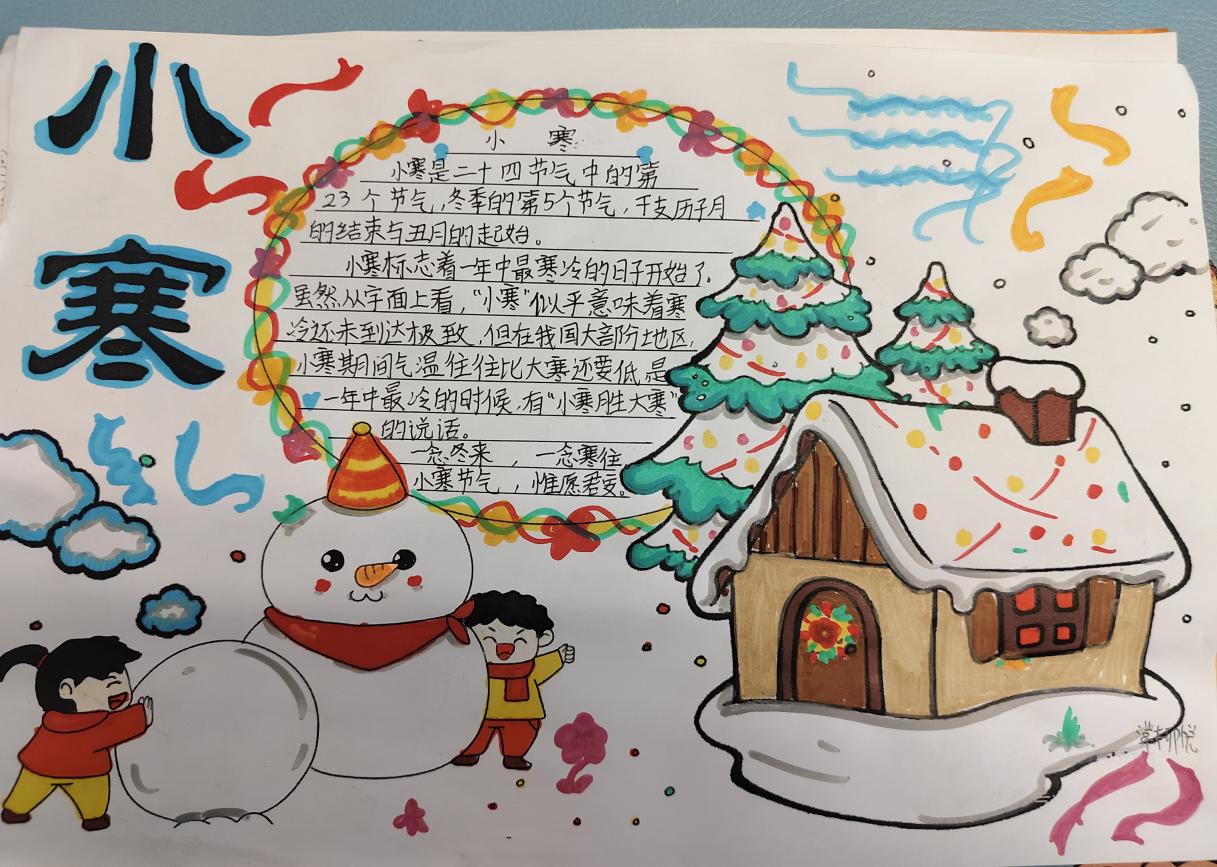 小
寒
小 寒
小寒是二十四节气中的第
23个节气,冬季的第5个节气,干支历子月
的结束与丑月的起始。
小寒标志着一年中最寒冷的日子开始了.
虽然从字面上看,“小寒”似乎意味着寒
冷还未到达极致,但在我国大部份地区,
小寒期间气温往往比大寒还要低是
一年中最冷的时候,有“小寒胜大寒”
的说话。
一念冬来 , 一念寒往
小寒节气 , 惟愿君安。